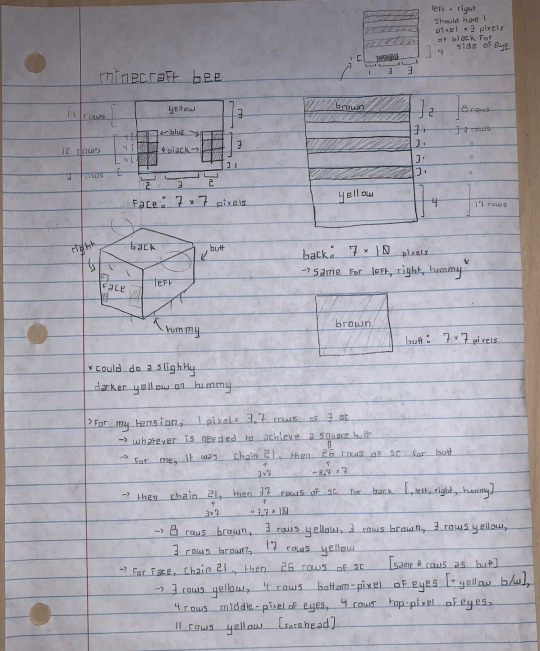 left + right
should have 1
pixel × 3 pixels
of black for
side of eye
4
1 2 3
minecraft bee
11 rows
yellow
3
12 rows
4
4
4
blue
black
3
3 rows
1
2 3 2
Face: 7 × 7 pixels
brown
2
8 rows
1
3 rows
1
"
1
"
1
"
yellow
4
17 rows
back: 7 × 10 pixels
→ same for left, right, tummy*
right
back
butt
Face
left
tummy
brown
butt: 7×7 pixels
*could do a slightly
darker yellow on tummy
>For my tension, 1 pixel = 3.7 rows of 3 sc
→ whatever is needed to achieve a square butt
→ For me, it was chain 21, then 26 rows of sc for butt
3×7 ~3.7×7
→ then chain 21, then 37 rows of sc for back [,left, right, tummy]
3×7 ~3.7×10
→ 8 rows brown, 3 rows yellow, 3 rows brown, 3 rows yellow,
3 rows brown, 17 rows yellow
→ For Face, chain 21, then 26 rows of sc [same # rows as butt]
→ 3 rows yellow, 4 rows bottom-pixel of eyes [+ yellow b/w],
4 rows middle-pixel of eyes, 4 rows top-pixel of eyes,
11 rows yellow [forehead]